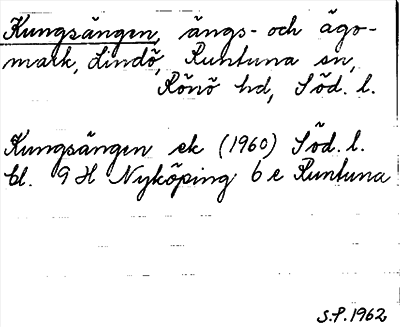 Kungsängen, ängs- och ägo-
mark, Lindö, Runtuna sn,
Rönö hd, Söd. l.
Kungsängen ek (1960) Söd. l.
bl. 9 H Nyköping 6 e Runtuna
S.P. 1962